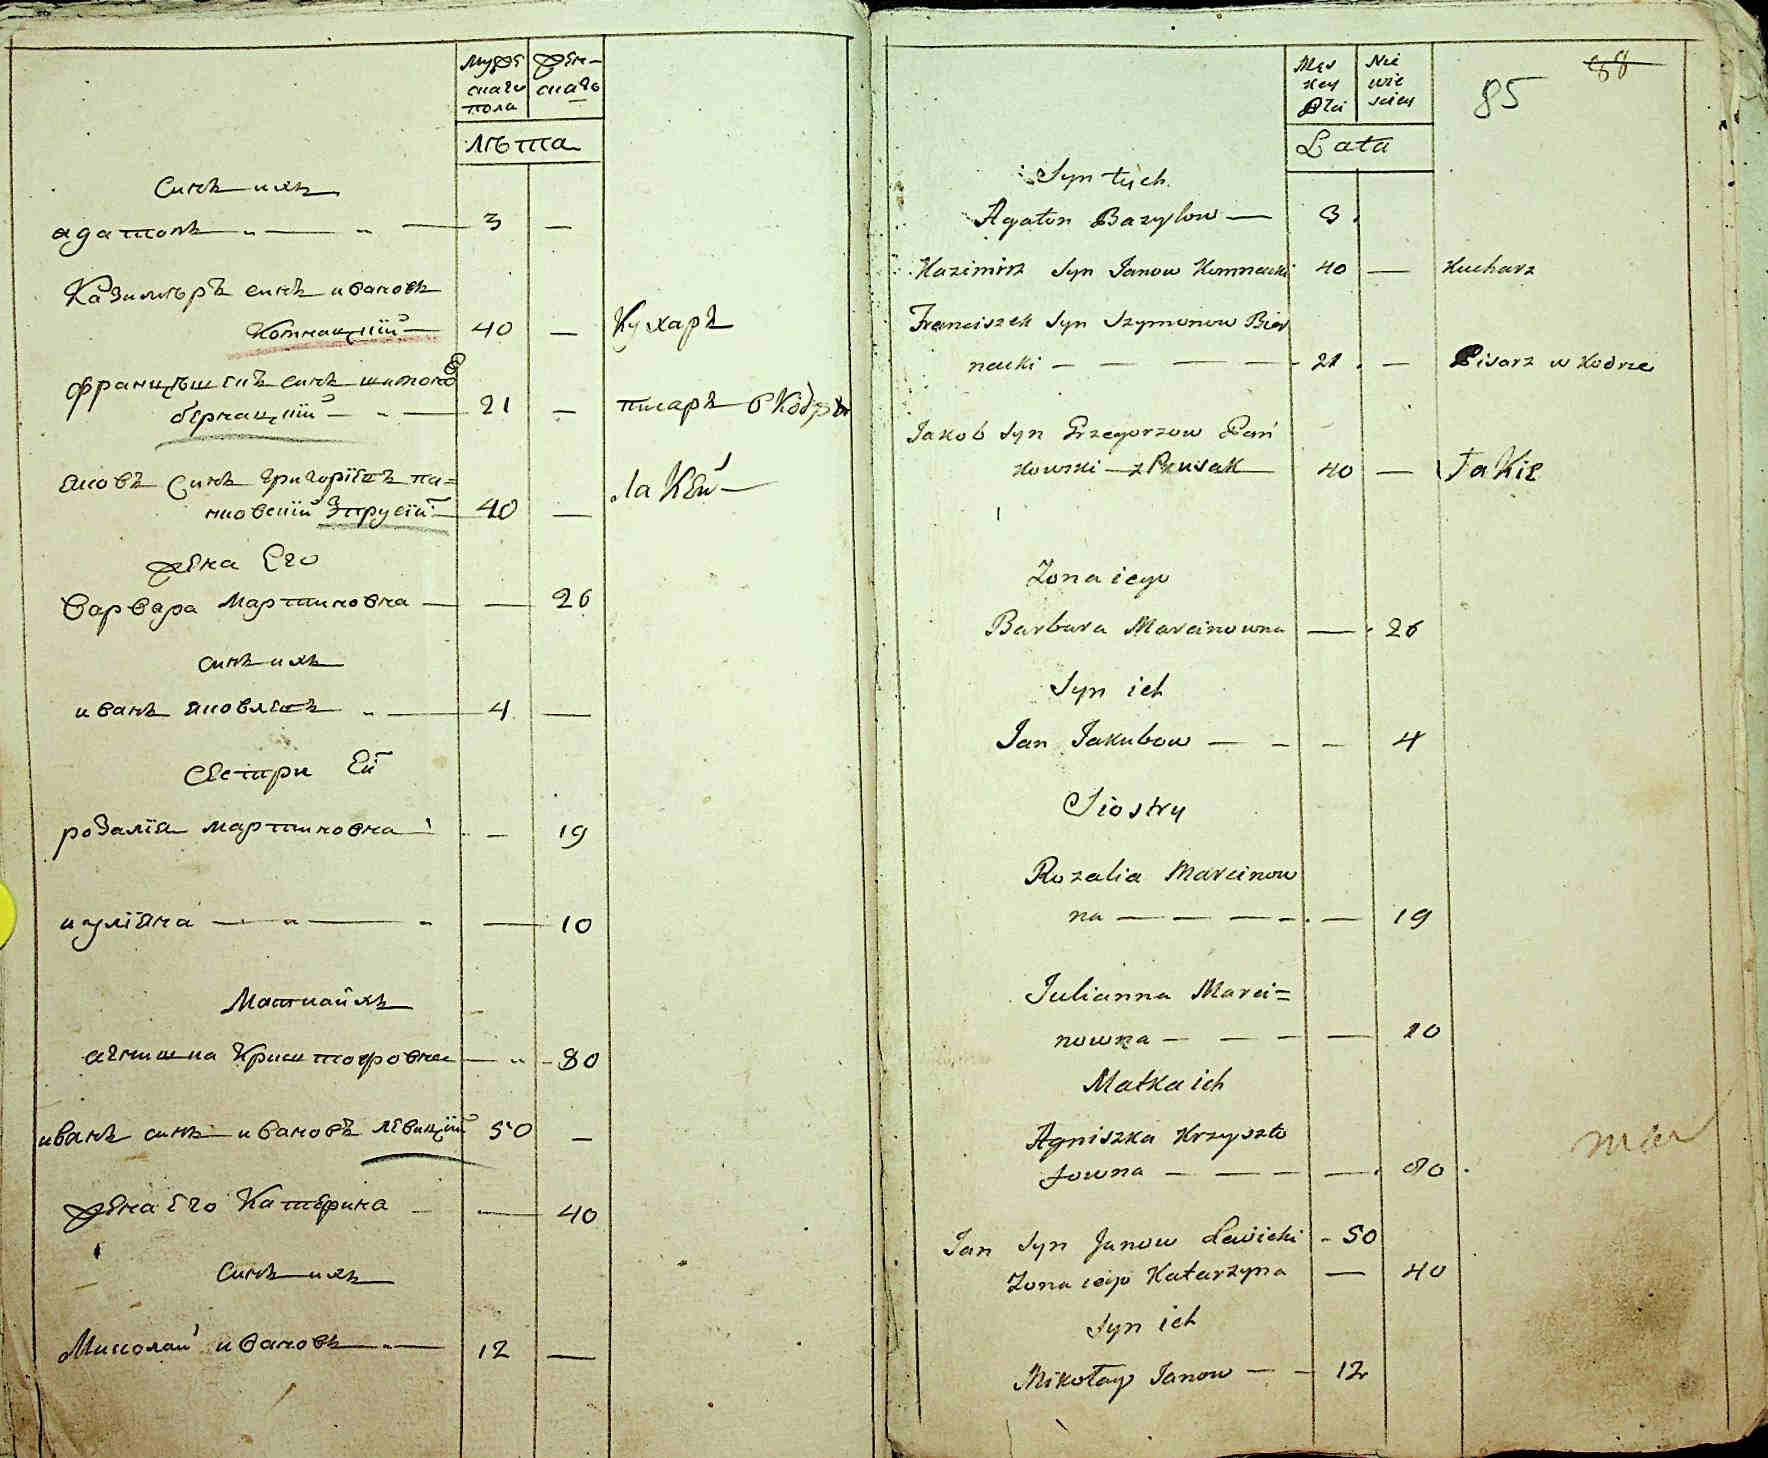 мужескаго пола
женскаго
лѣта
Синъ ихъ
агатонъ — — 3 —
Казимѣръ синъ ивановъ
Комнацкій — 40 — Кухаръ
францѣшекъ синъ шимоновъ
бернацкій — 21 — писаръ в Кодрѣ
Яковъ Синъ григоріевъ па=
нковскій Зпрусій — 40 — лакей —
жена Его
варвара Мартиновна — — 26
синъ ихъ
иванъ яковлевъ — 4 —
Сестри Ей
розалія мартиновна — 19
иуліяна — — — 10
Матиаихъ
агнишка Криштофовна — — 80
иванъ синъ ивановъ левицкій 50 —
жена Его Катерина — — 40
Синъ ихъ
Миколай ивановъ — 12 —
Męskey Płci
Niewiesciey
85
Lata
Syn tych
Agaton Bazylow — 3
Kazimirz Syn Janow Komnacki 40 — Kucharz
Franciszek Syn Szymonow Bier
nacki — — — — 21 — Pisarz w Kodrze
Jakob Syn Grzegorzow Pań
kowski — z Prusak — 40 — Takiz
Zona iego
Barbara Marcinowna — 26
Syn ich
Jan Jakubow — — — 4
Siostry
Rozalia Marcinow
na — — — — — 19
Julianna Marci=
nowna — — — — 10
Matka ich
Agniszka Krzyszto
fowna — — — — 80
Jan Syn Janow Lewicki - 50
Zona iego Katarzyna — 40
Syn ich
Mikołay Janow — - 12